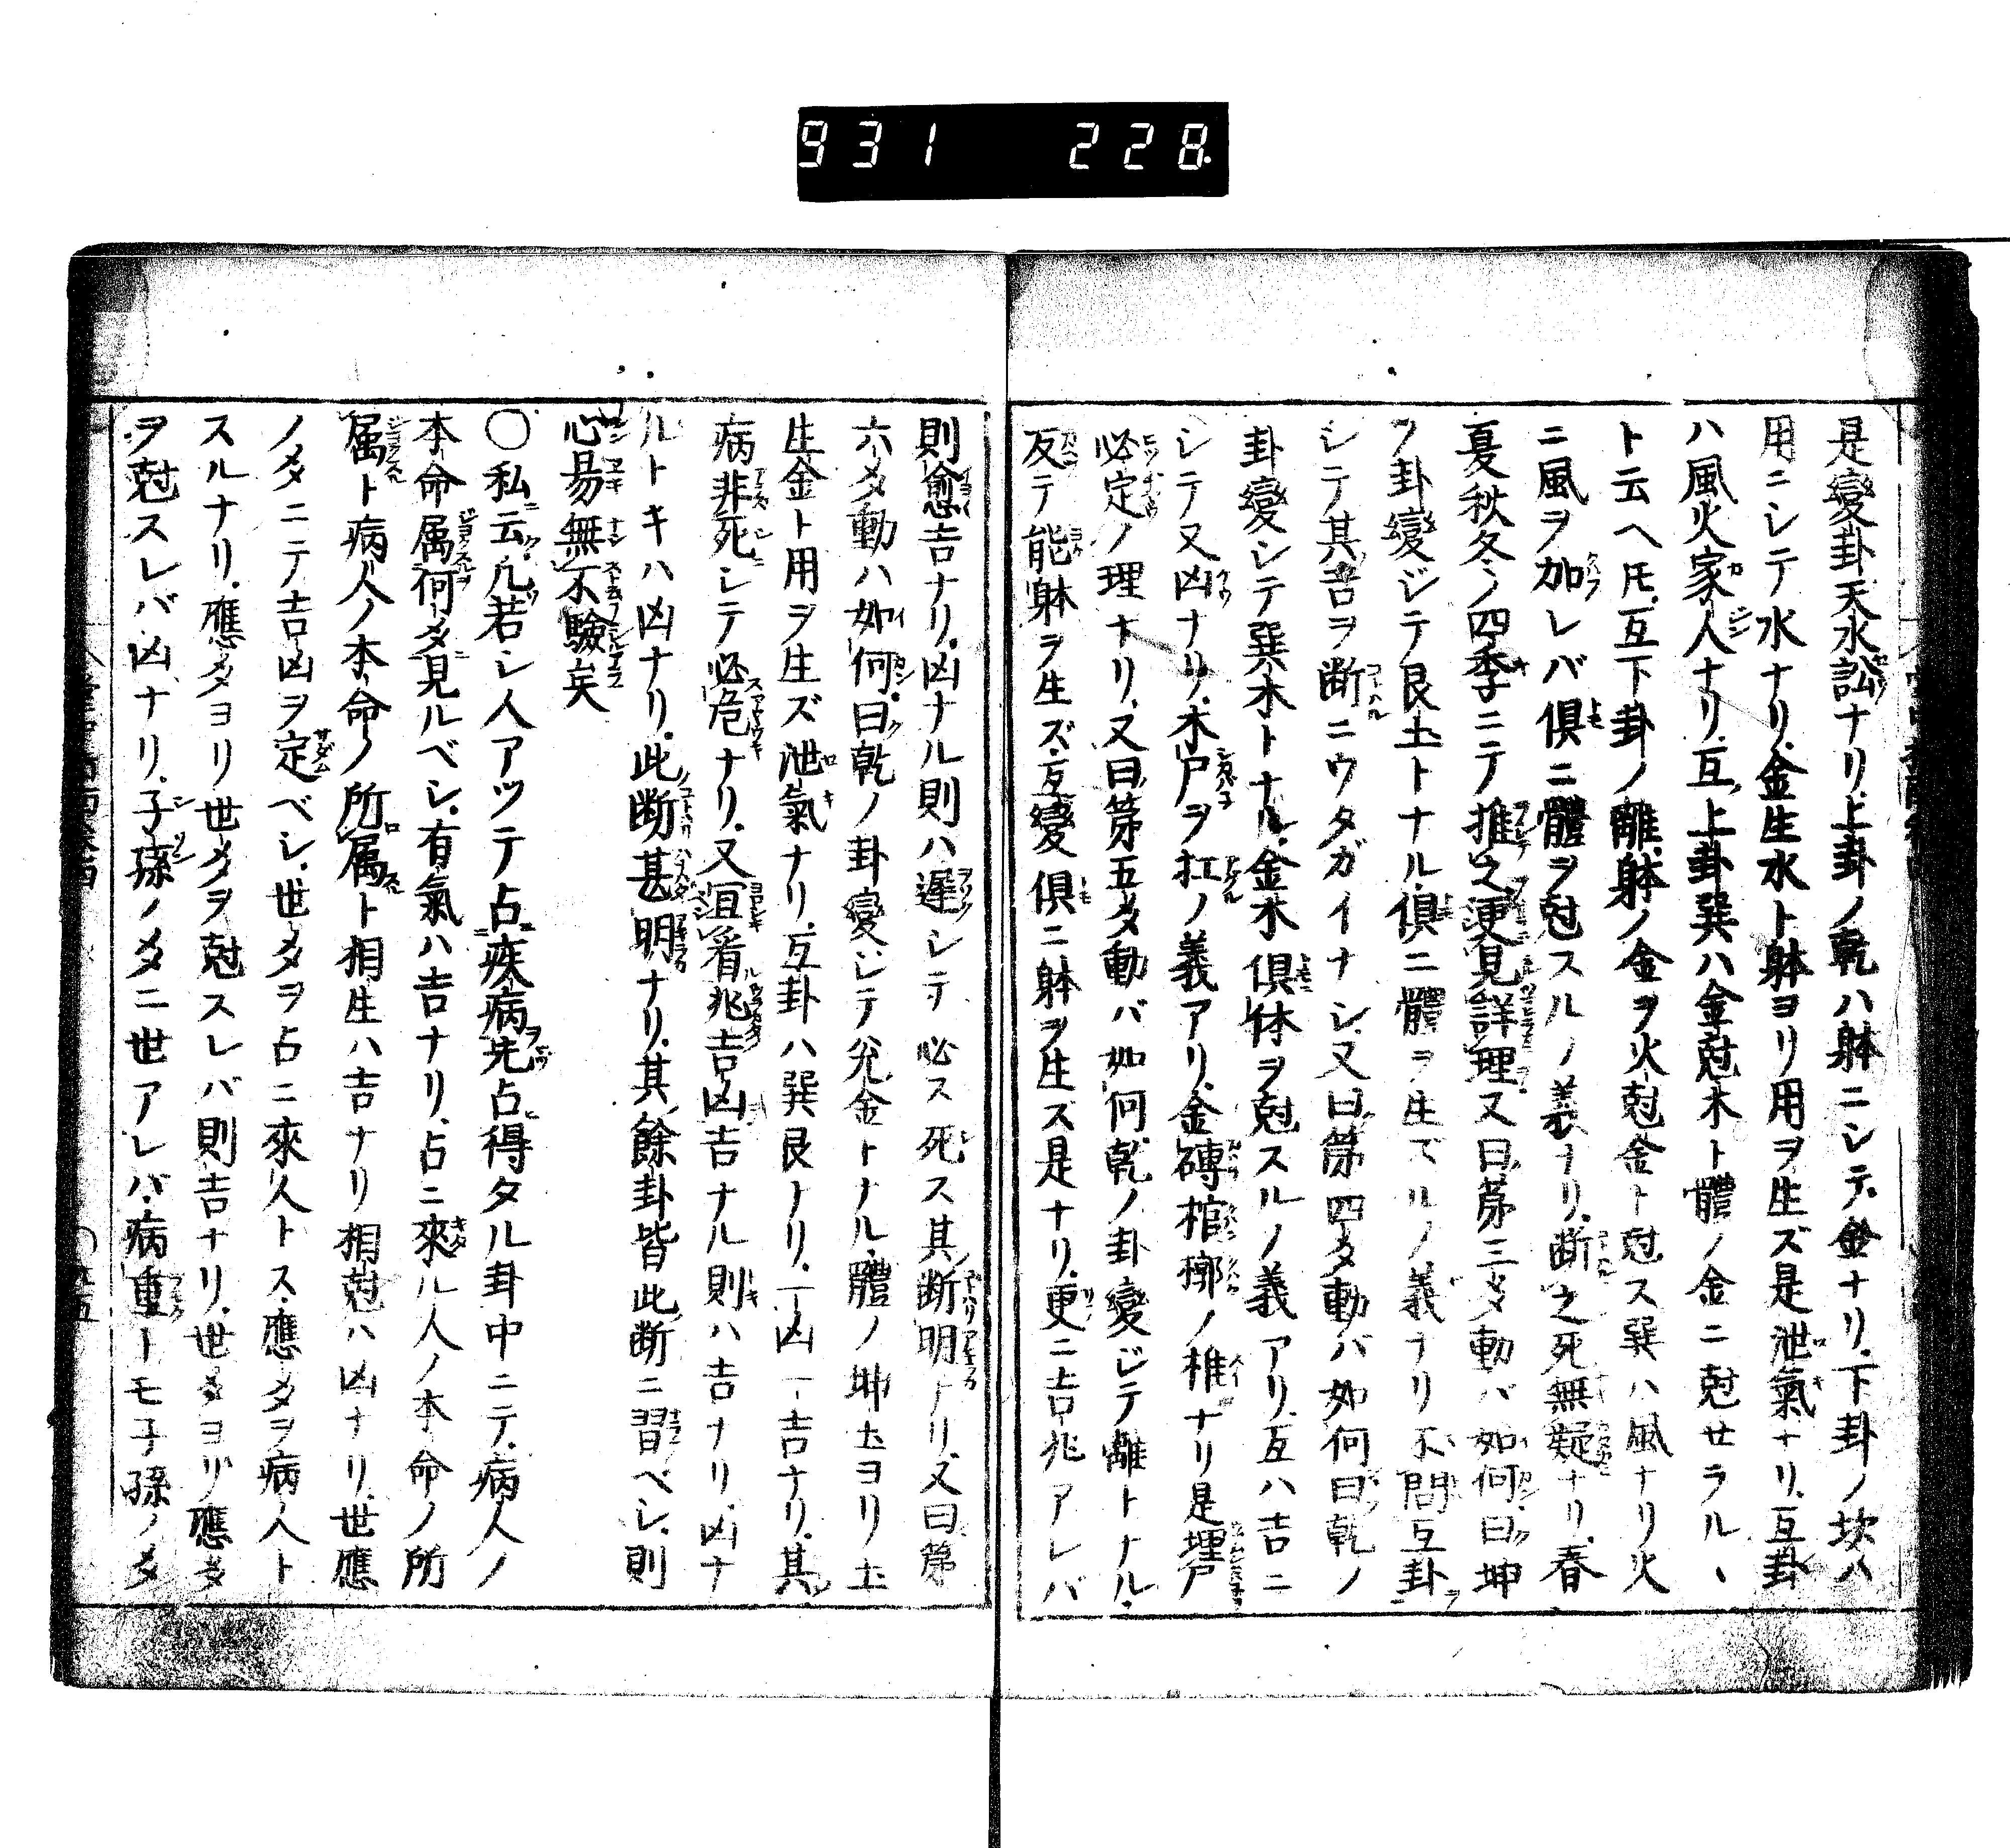 931 228.
是變卦天水訟ナリ上卦ノ乾ハ躰ニシテ金ナリ下卦ノ坎ハ
用ニシテ水ナリ金生水ト躰ヨリ用ヲ生ズ是泄氣ナリ互卦
ハ風火家人ナリ互上卦巽ハ金尅木ト體ノ金ニ尅セラルヽ
ト云ヘ𪜈互下卦ノ離躰ノ金ヲ火尅金ト尅ス巽ハ風ナリ火
ニ風ヲ加レバ倶ニ體ヲ尅スルノ義ナリ断之死無疑ナリ春
夏秋冬ノ四季ニテ推之更見詳理又曰第三爻動バ如何曰坤
ノ卦變ジテ艮土トナル倶ニ體ヲ生ズルノ義ナリ不問互卦
シテ其吉ヲ断ニウタガイナシ又曰第四爻動バ如何曰乾ノ
卦變シテ巽木トナル金木倶体ヲ尅スルノ義アリ互ハ吉ニ
シテ又凶ナリ木尸ヲ扛ノ義アリ金磚棺槨ノ椎ナリ是埋尸
必定ノ理ナリ又曰第五爻動バ如何乾ノ卦變ジテ離トナル
反テ能躰ヲ生ズ互變倶ニ躰ヲ生ス是ナリ更ニ吉兆アレバ
則愈吉ナリ凶ナル則ハ遲シテ必ス死ス其断明ナリ又曰第
六爻動ハ如何曰乾ノ卦變シテ兌金トナル體ノ坤土ヨリ土
生金ト用ヲ生ズ泄氣ナリ互卦ハ巽艮ナリ一凶一吉ナリ其
病非死シテ必危ナリ又宜看兆吉凶吉ナル則ハ吉ナリ凶ナ
ルトキハ凶ナリ此断甚明ナリ其餘卦皆此断ニ習ベシ則
心易無不驗矣
〇私云凡若シ人アツテ占疾病先占得タル卦中ニテ病人ノ
本命属何爻見ルベシ有氣ハ吉ナリ占ニ來ル人ノ本命ノ所
属ト病人ノ本命ノ所属ト相生ハ吉ナリ相尅ハ凶ナリ世應
ノ爻ニテ吉凶ヲ定ベシ世爻ヲ占ニ來人トス應爻ヲ病人ト
スルナリ應爻ヨリ世爻ヲ尅スレバ則吉ナリ世爻ヨリ應爻
ヲ尅スレバ凶ナリ子孫ノ爻ニ世アレバ病重トモ子孫ノ爻